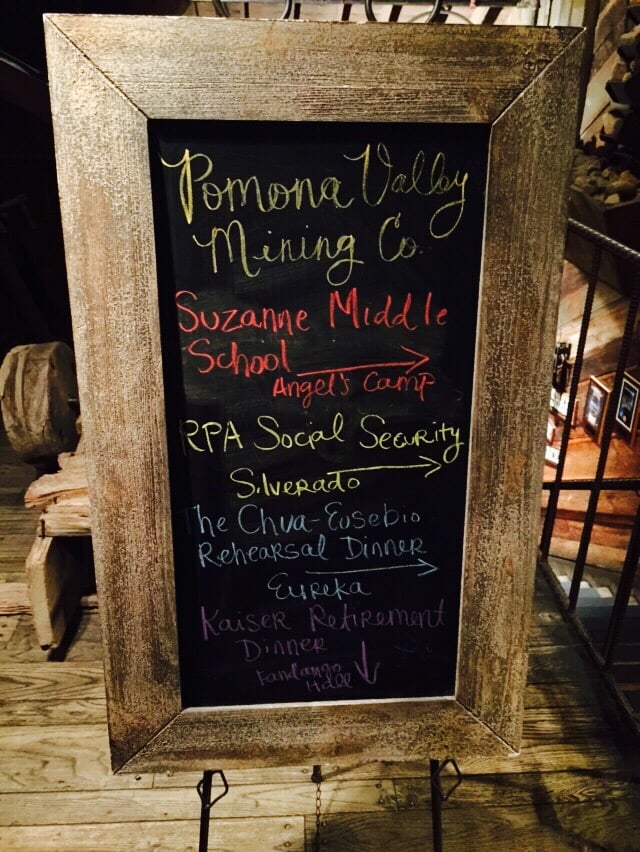 Pomona Valley
Mining Co.
Suzanne Middle
School
Angel's Camp
RPA Social Security
Silverado
The Chua-Eusebio
Rehearsal Dinner
Eureka
Kaiser Retirement
Dinner
Fandango
Hall